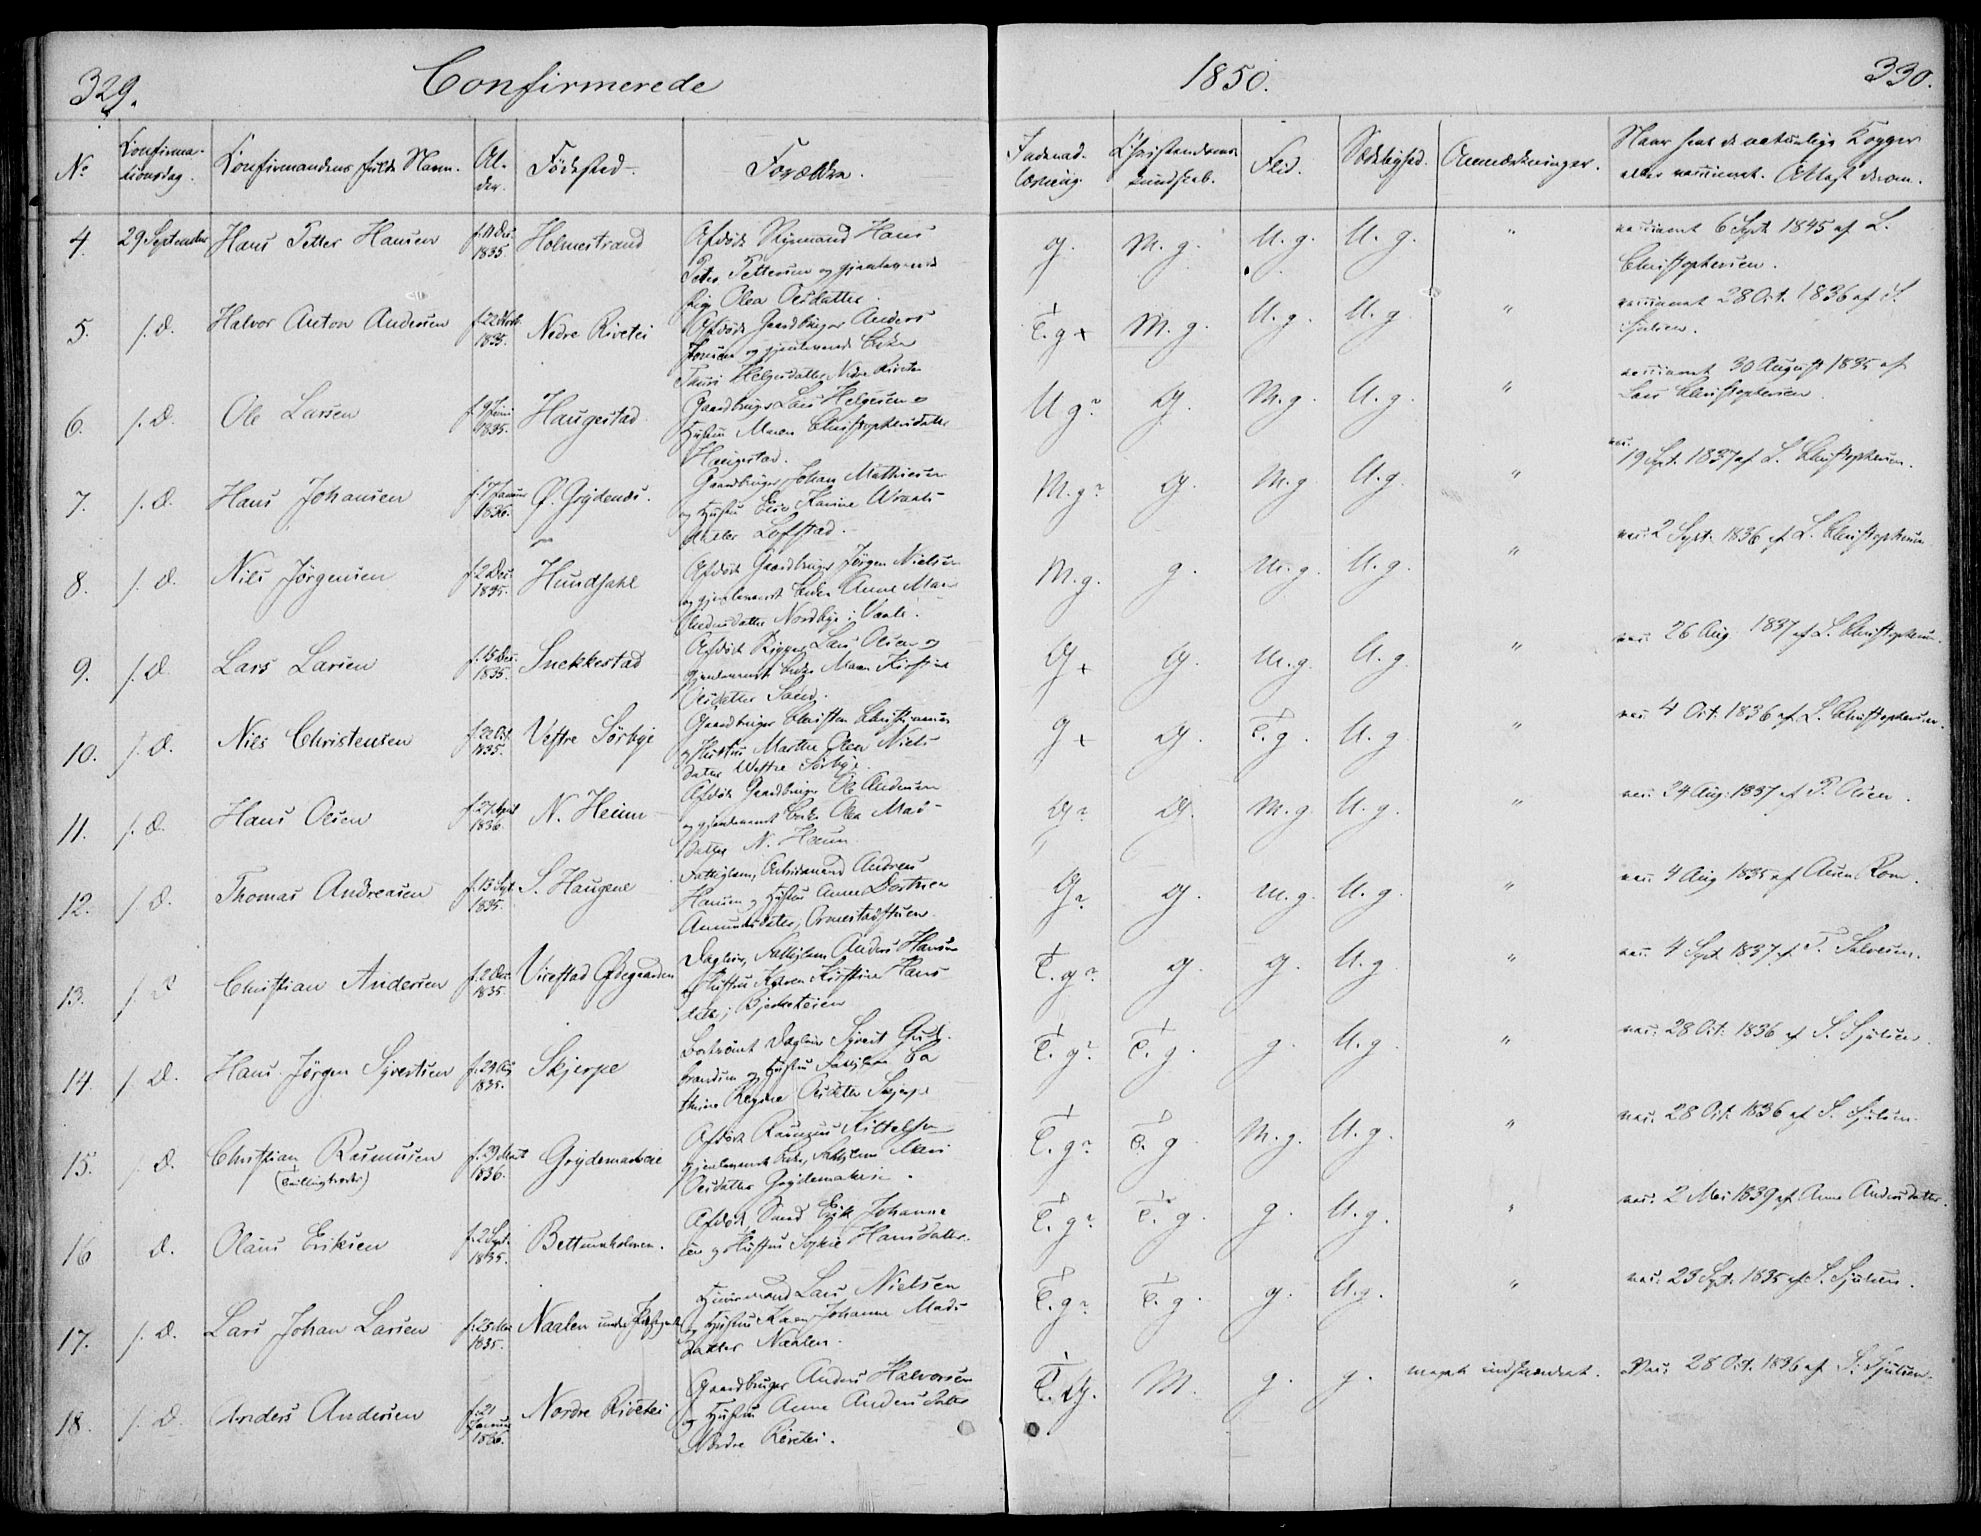 329.
Confirmerede
1850.
330.
No
Confirma-
tionsdag.
Confirmandens fulde Navn.
Al-
der.
Fødested.
Forældre.
Indenad-
læsning.
Christendoms
kundskab.
Flid.
Sædelighed.
Anmærkninger.
Naar havt de naturlige Kopper
eller vaccineret. Attest derom.
4. 29 September Hans Petter Hansen f. 11 Dec. 1835 Holmestrand
Afdøde Styrmand Hans
Peter Pettersen og gjenlevende
Pige Olea Olsdatter.
g. M. g. U. g. U. g. " vaccineret 6 Sept 1845 af L.
Christophersen.
5. s. D. Halvor Anton Andersen f. 22 Novb. 1835. Nedre Rivetei
Afdøde Gaardbruger Anders
og gjenlevende Enke
Helgesdatter Nedre Rivetei
T. g + M. g. U. g. U. g. " vaccineret 28 Oct. 1836 af S.
Sjulsen.
6. s. D. Ole Larsen f. 9 Juni 1835. Haugestad
Gaardbruger Lars Helgesen o
Hustru Maren Christophersdatter
Haugestad.
U g? g. M. g. U. g. " vaccineret 30 August 1835 af
Lars Christophersen.
7. s. D. Hans Johansen f. 17 Januar 1836. Ø. Grydenæs.
Gaardbruger Johan Mathiesen
og Hustru Karine
datter Lofstad.
M. g? g. M. g. U. g. " vac.
19 Sept. 1837 af L. Christophersen.
8. s. D. Nils Jørgensen f. 2 Dec. 1835. Hundsahl
Afdøde Gaardbruger Jørgen Nielsen
og gjenlevende Enke Anne Mar
Andersdatter Nordbye i Vaale.
M. g. g. M. g. U. g. " vac. 2 Sept. 1836 af L. Christophersen
9. s. D. Lars Larsen f. 15 Dec. 1835. Snekkestad
Afdøde Lars Olsen og
gjenlevende Enke Maren Kirstine
Olsdatter Sand.
g + g. M. g. U. g. " vac. 26 Aug. 1837 af L. Christophersen.
10. s. D. Nils Christensen f. 22 Oct. 1835. Vestre Sørbye
Gaardbruger Christen Christensen
og Hustru Marthe Olea Niels
datter Westre Sørbye.
g + g. T. g. U. g. " vac. 4 Oct. 1836 af L. Christophersen.
11. s. D. Hans Olsen f. 27 April 1836. N. Heum
Afdøde Gaardbruger Ole Andersen
og gjenlevende Enke Olea Mad-
datter N. Heum
g? g. M. g. U. g. " vac. 24 Aug. 1837 af P. Olsen.
12. s. D. Thomas Andreasen f. 13 Sept. 1835. S. Haugene
Fattiglem, Arbeidsmand Andreas
Hansen og Hustru Anne Dorthea
Amundsdatter, Ormestadstuen
g? g. M. g. U. g. " vac. 4 Aug 1835 af Rom.
13. s. D Christian Andersen f. 2 Dec. 1835. Virestad Ødegaarden
Dagleier, Fattiglem Anders Hansen
og Hustru Karen Kirstine Hans
datter, Bjerketeien
T. g? g. g. U. g. " vac. 4 Sept 1837 af T. Halvorsen.
14 s. D. Hans Jørgen Syvertsen f. 29 Aug 1835. Skjerpe
Bortrømt Dagleier Syvert Gud-
brandsen og Hustru Fattiglem Ca
thrine Regine Olsdatter Skjerpe
T. g? T. g. g. U. g. " vac. 28 Oct. 1836 af S. Sjulsen.
15. s D. Christian Rasmusen
(Tvillingbroder)
f. 29 Mart 1836. Grydemarkeie
Afdøde Rasmus Kittelsen
gjenlevende Enke, Fattiglem Mari
Olsdatter Grydemarkeie.
T. g? T. g M. g. U. g. " vac. 28 Oct. 1836 af S. Sjulsen.
16 D. Olaus Eriksen f. 2 Sept. 1835. Bettumholmen.
Afdøde Smed Erik Johanne
sen og Hustru Sophie Hansdatter.
T. g? T. g. g. U. g. " vac. 2 Mai 1839 af Anne Andersdatter.
17. s. D. Lars Johan Larsen f. 25 Mai 1835. Naalen under
Huusmand Lars Nielsen
og Hustru Karen Johanne Mads
datter Naalen.
T. g? T. g. g. U. g. " vac. 23 Sept. 1835 af S. Sjulsen.
18. s. D Anders Andersen f. 21 Januar 1836. Nordre Rivetei
Gaardbruger Anders Halvorsen
og Hustru Anne Andersdatter
Nordre Rivetei.
T. g. M. g. g. meget indskrænket. Vac. 28 Oct. 1836 af S. Sjulsen.